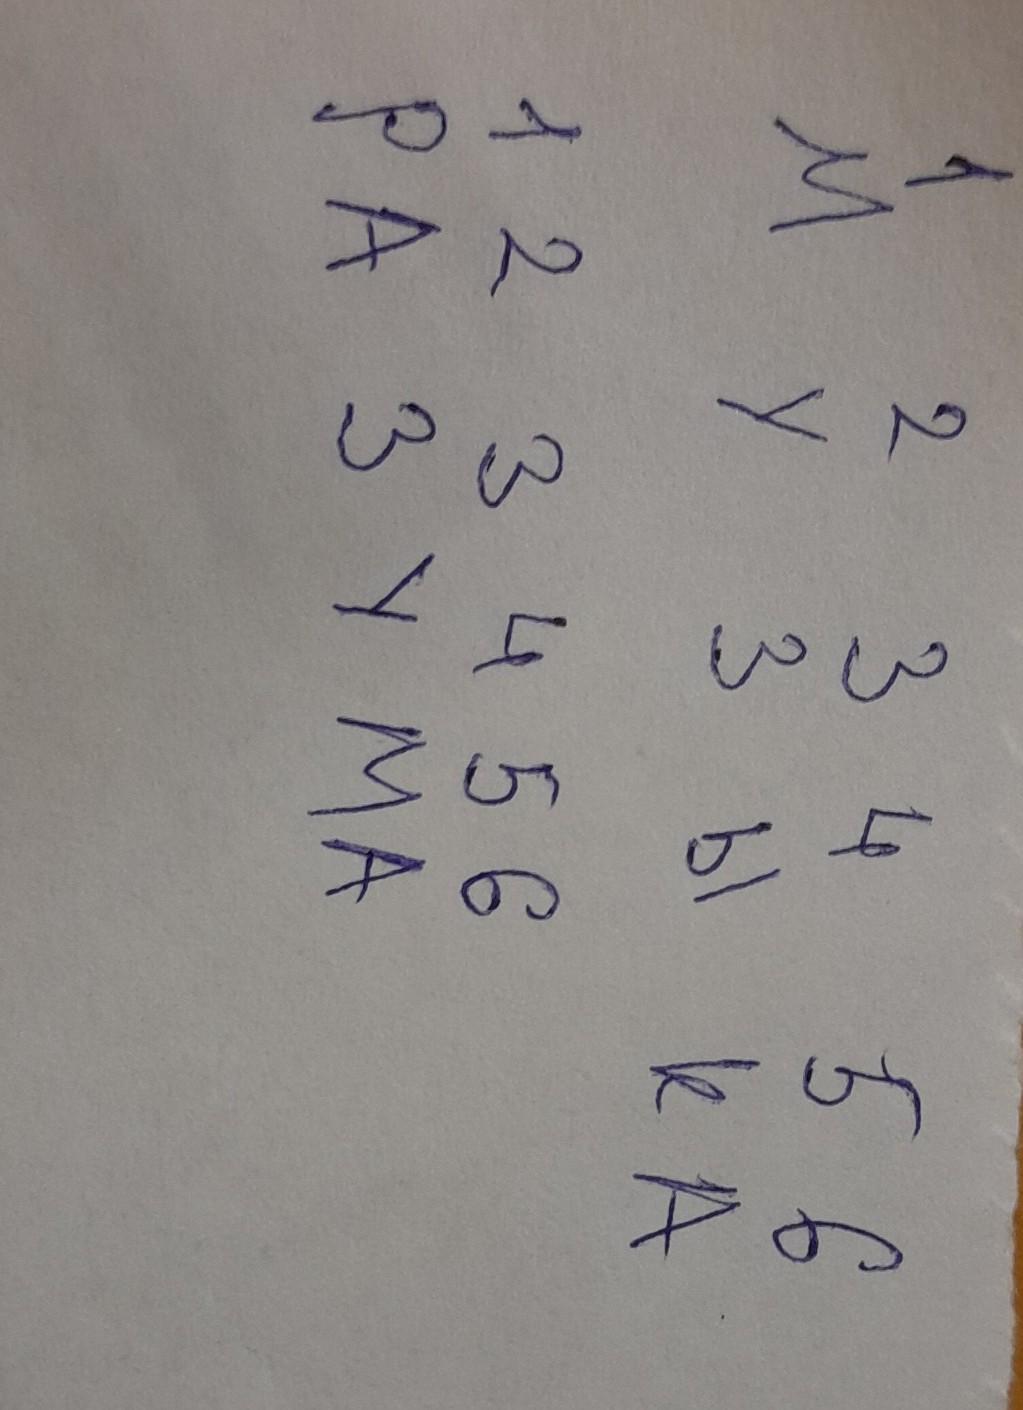 1 2 3 4 5 6
М У З Ы К А
1 2 3 4 5 6
Р А З У М А